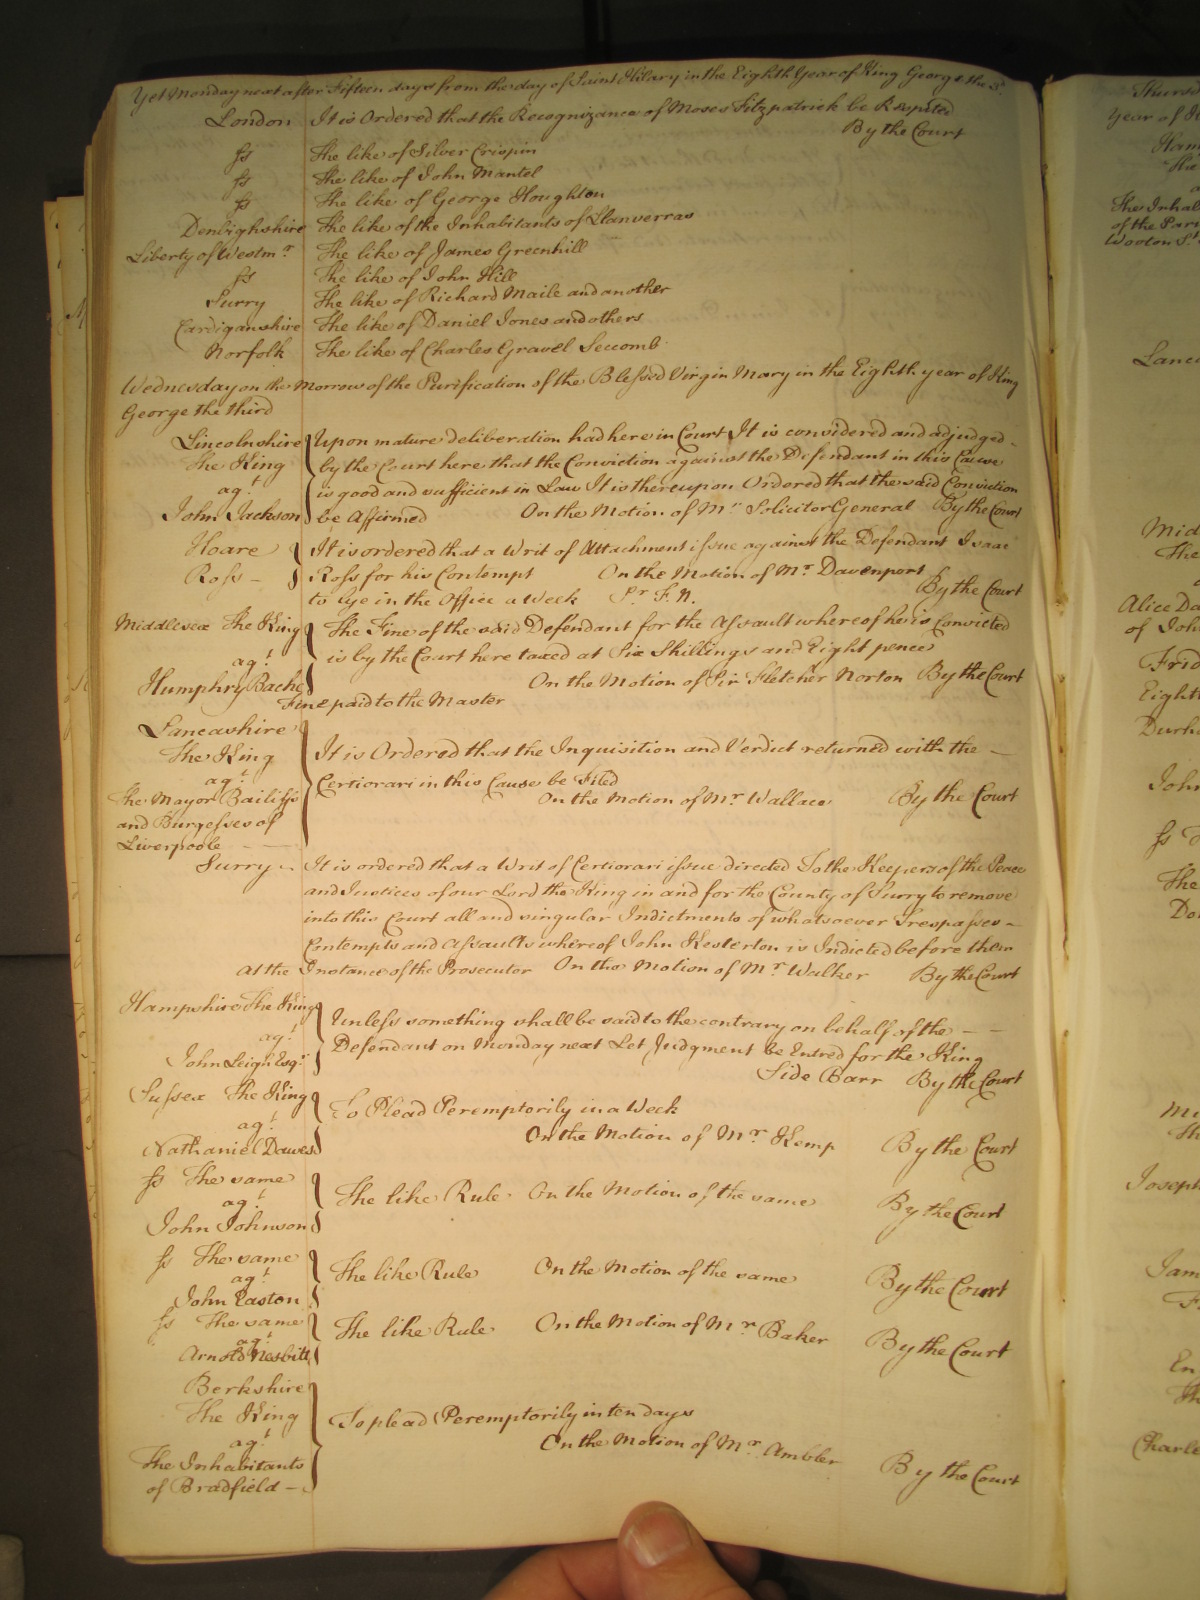 Yet Monday next after Fifteen days from the day of Saint Hilary in the Eighth Year of King George the 3d.
London It is Ordered that the Recognizance of Moses Fitzpatrick be Respited
By the Court
ss The like of Silver Crispin
ss The like of John Mantel
ss The like of George Houghton
Denbighshire The like of the Inhabitants of Llanverras
Liberty of Westmr. The like of James Greenhill
ss The like of John Hill
Surry The like of Richard Maile and another
Cardiganshire The like of Daniel Jones and others
Norfolk The like of Charles Gravel Seccomb
Wednesday on the Morrow of the Purification of the Blessed Virgin Mary in the Eighth year of King
George the third
Lincolnshire Upon mature deliberation had here in Court It is considered and adjudged
The King by the Court here that the Conviction against the Defendant in this Cause
agt. is good and sufficient in Law It is thereupon Ordered that the said Conviction
John Jackson be Affirmed On the Motion of Mr. Solicitor General By the Court
Hoare It is ordered that a Writ of Attachment issue against the Defendant Isaac
Ross Ross for his Contempt On the Motion of Mr. Davenport
to lye in the Office a Week Pr. F. N. By the Court
Middlesex The King The Fine of the said Defendant for the Assault whereof he is Convicted
agt. is by the Court here taxed at Six Shillings and Eight pence
Humphry Bache On the Motion of Sir Fletcher Norton By the Court
Fine paid to the Master
Lancashire
The King It is Ordered that the Inquisition and Verdict returned with the
agt. Certiorari in this Cause be Filed
The Mayor Bailiffs On the Motion of Mr. Wallace By the Court
and Burgesses of
Liverpoole
Surry It is ordered that a Writ of Certiorari issue directed To the Keepers of the Peace
and Justices of our Lord the King in and for the County of Surry to remove
into this Court all and singular Indictments of whatsoever Trespasses
Contempts and Assaults whereof John Kesterton is Indicted before them
At the Instance of the Prosecutor On the Motion of Mr. Walker By the Court
Hampshire The King Unless something shall be said to the contrary on behalf of the
agt. Defendant on Monday next Let Judgment be Entred for the King
John Leigh Esqr. Side Barr By the Court
Sussex The King To Plead Peremptorily in a Week
agt.
Nathaniel Dawes On the Motion of Mr. Kemp By the Court
ss The same
agt. The like Rule On the Motion of the same By the Court
John Johnson
ss The same
agt. The like Rule On the Motion of the same By the Court
John Easton
ss The same The like Rule On the Motion of Mr. Baker By the Court
agt.
Arnold Nesbitt
Berkshire
The King To plead Peremptorily in ten days
agt. On the Motion of Mr. Ambler By the Court
The Inhabitants
of Bradfield
Thursd
Year of K
Ham
The
The Inhab
of the Pari
Wooton St
Lanc
Mid
The
Alice Da
of John
Frid
Eight
Durh
John
ss
The
Do
Joseph
Jam
En
Th
Charle